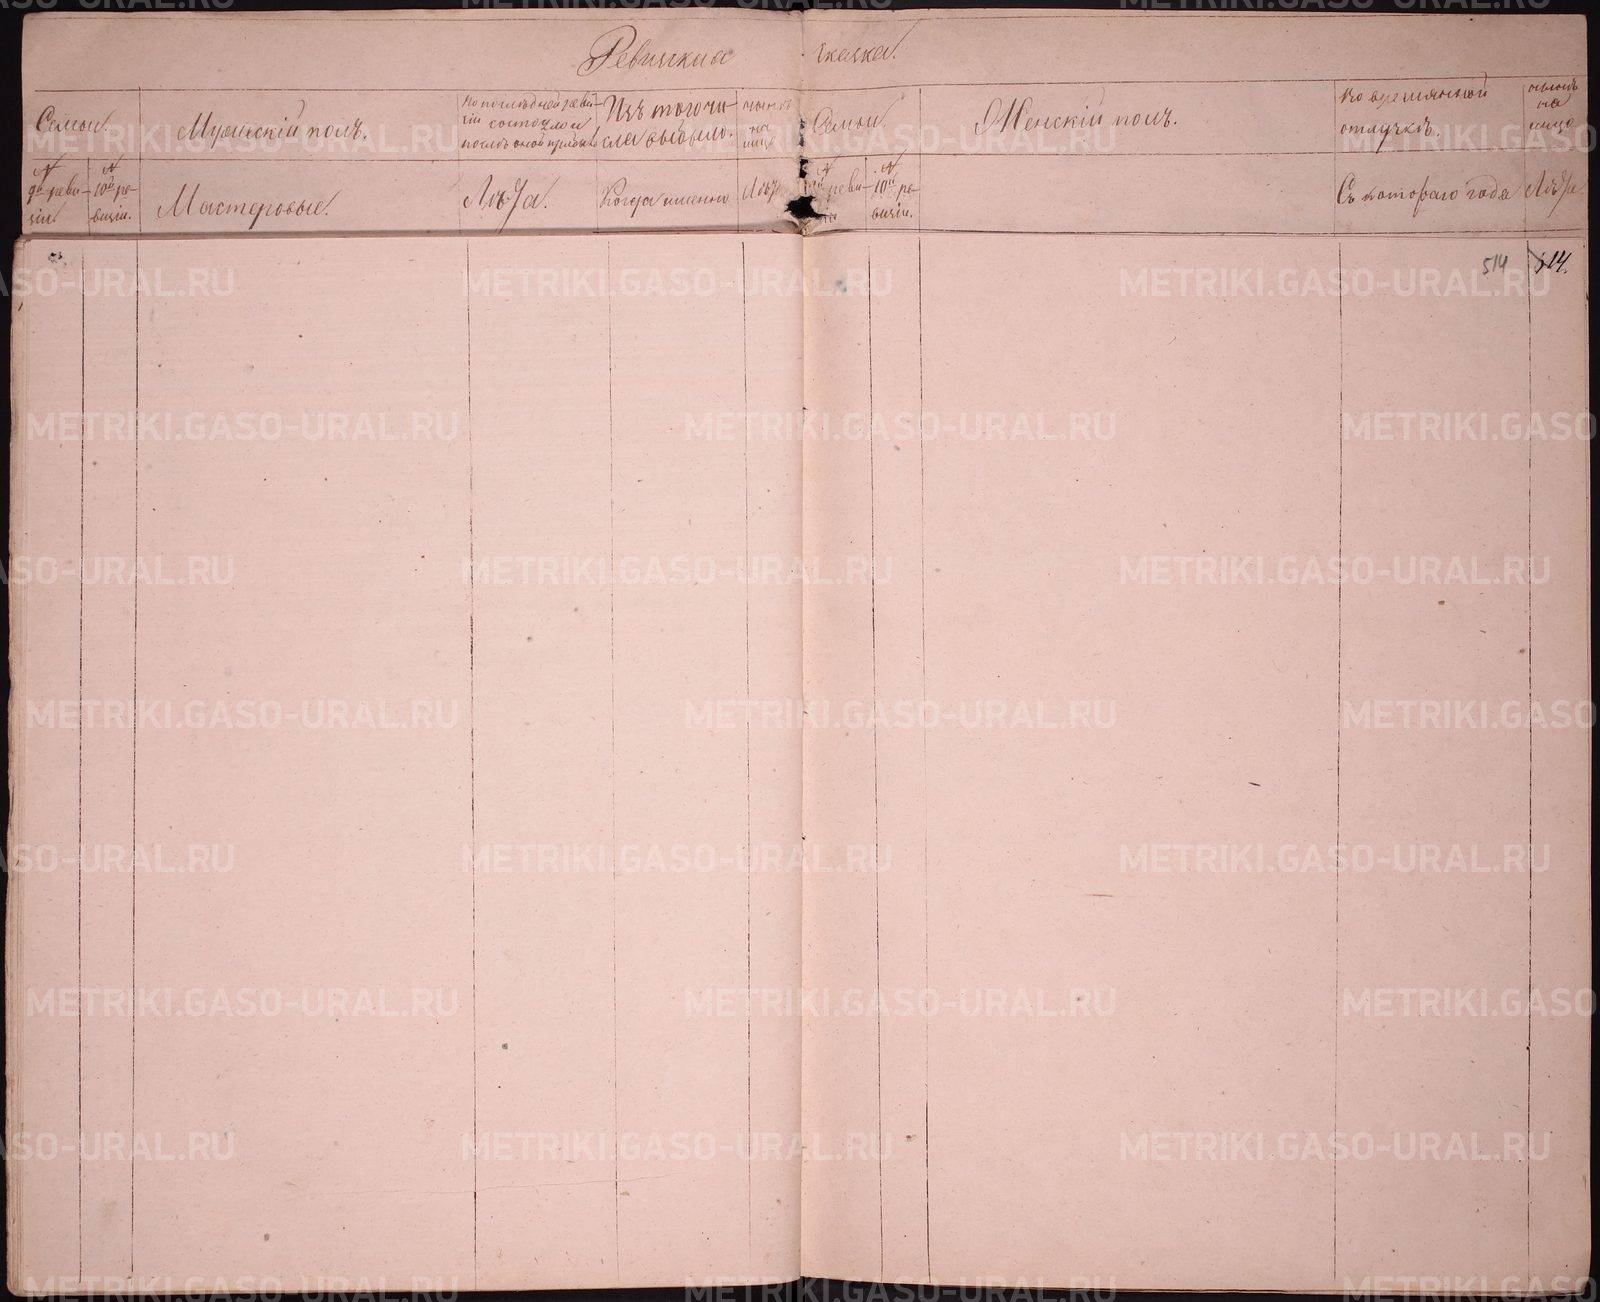 Ревизская сказка.
Семьи.
Мужескій полъ.
По последней реви-
зіи состояло и
после оной прибыло
Изъ того чи-
сла выбыло.
ныне
на
лицо
Семьи.
Женскій полъ.
Во временной
отлучкѣ.
ныне
на
лицо
№
9й реви-
зіи
№
10й ре-
визіи.
Мастеровые.
Лѣта.
Когда именно
Лѣта
№
реви-
зіи
№
10й ре-
визіи.
Съ котораго года
Лѣта
514
514.
METRIKI.GASO-URAL.RU